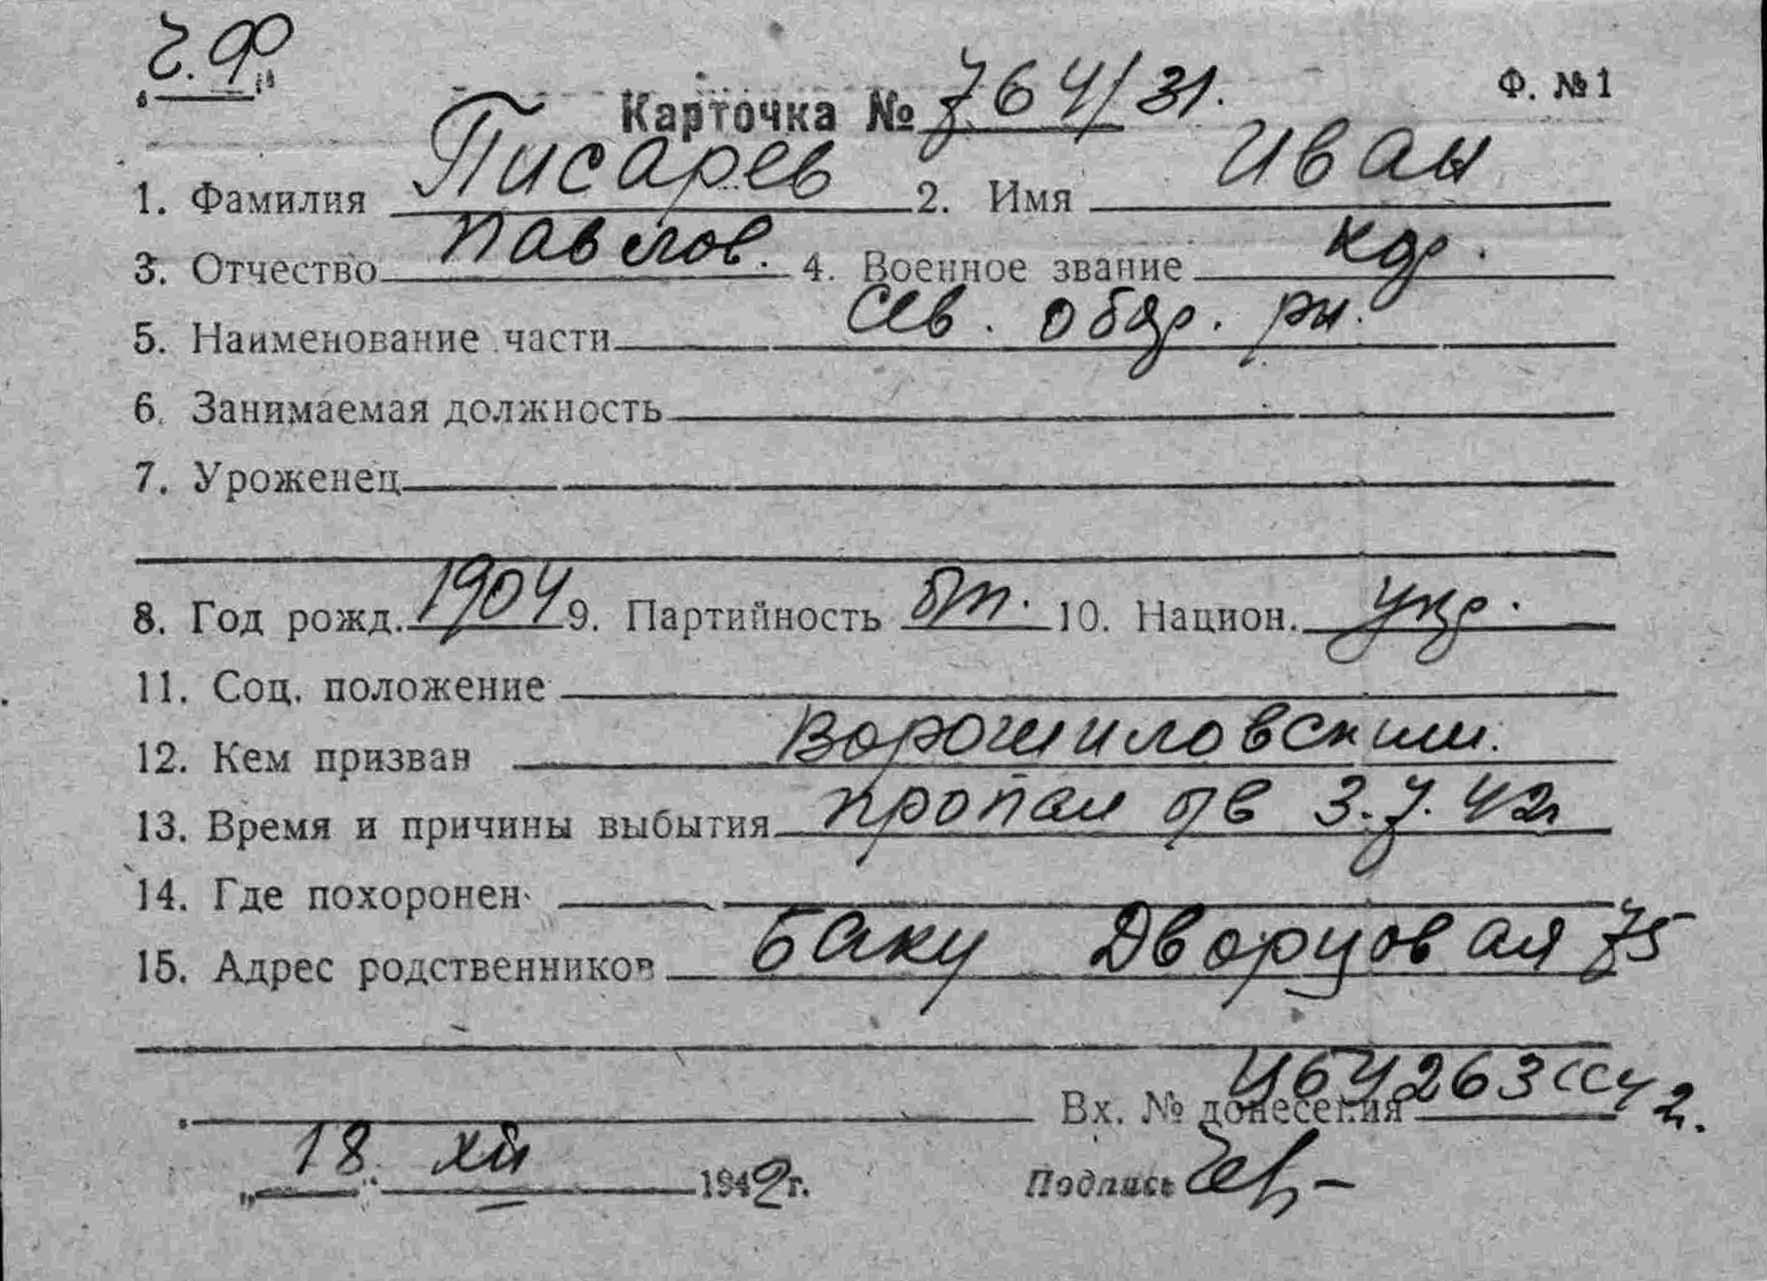 Ч.Ф
Карточка № 764/31. Ф. №1
1. Фамилия Писарев 2. Имя Иван
3. Отчество Павлов. 4. Военное звание кдр.
5. Наименование части Сев. обдр. рн.
6. Занимаемая должность
7. Уроженец
8. Год рожд. 1904 9. Партийность бп. 10. Национ. укр.
11. Соц. положение
12. Кем призван Ворошиловским.
13. Время и причины выбытия пропал б/в 3.7.42г
14. Где похоронен
15. Адрес родственников Баку Дворцовая 75
Вх. № донесения 464263сс42.
„18" XII 1942г. Подпись